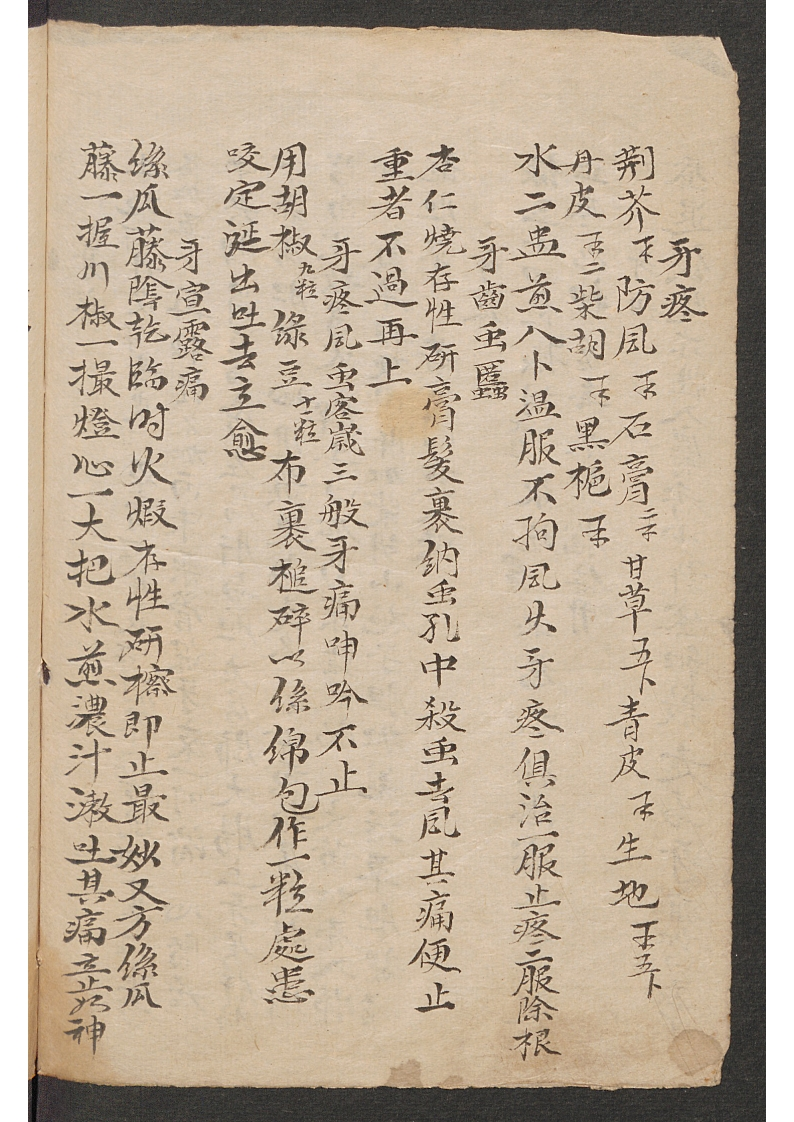 牙疼
荆芥 防風 石膏 甘草五卜青皮 生地 五卜
丹皮 二柴胡 黑梔
水二盅煎八卜温服不拘風火牙疼俱治一服止疼二服除根
牙齒虫䘌
杏仁燒存性研膏髮裹納虫孔中殺虫去風其痛便止
重者不過再上
牙疼風虫客嵗三般牙痛呻吟不止
用胡椒九粒 綠豆十一粒 布裹槌碎以絲綿包作一粒處患
咬定涎出吐去立愈
牙宣露痛
絲瓜藤陰乾臨时火煆存性研擦即止最妙又方絲瓜
藤一握川椒一撮燈心一大把水煎濃汁漱吐其痛立止如神